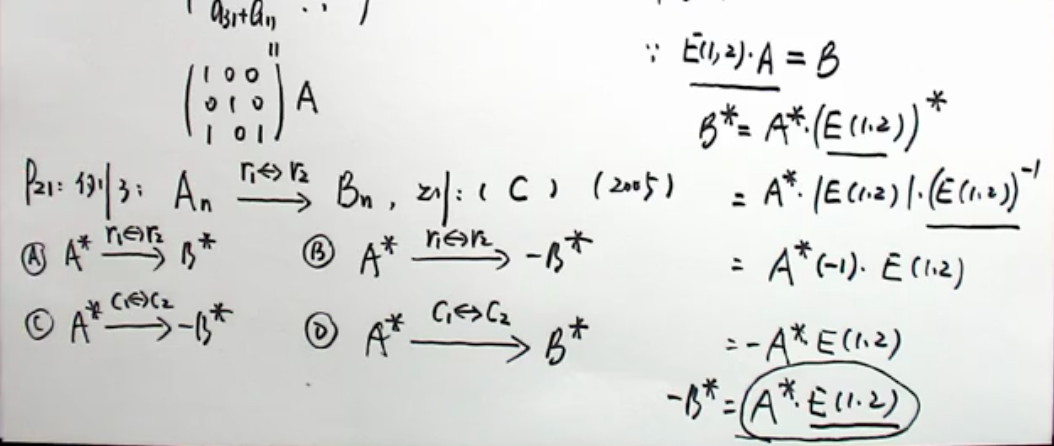 a₃₁+a₁₁ ⋱ )
॥
( 1 0 0
0 1 0
1 0 1 ) A
P21: 例3: Aₙ —r₁↔r₂→ Bₙ, 则: ( C ) (2005)
Ⓐ A* —r₁↔r₂→ B* Ⓑ A* —r₁↔r₂→ -B*
Ⓒ A* —C₁↔C₂→ -B* Ⓓ A* —C₁↔C₂→ B*
∵ E(1,2)·A = B
B* = A*·(E(1.2))*
= A*·|E(1.2)|·(E(1.2))⁻¹
= A*(-1)· E(1.2)
= -A* E(1.2)
-B* = A*· E(1.2)